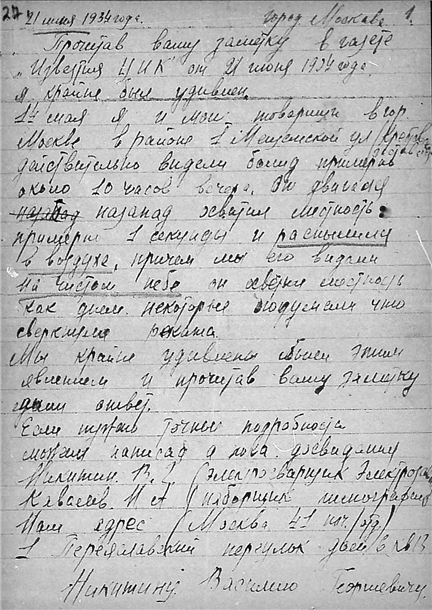 27
21 июня 1934 года. город Москва. 1.
Прочитав вашу заметку в газете
"Известия ЦИК" от 21 июня 1934 года
я крайне был удивлен.
мая я и мои товарищи в гор.
Москве в районе 1 Мещанской ул
действительно видели болид примерно
около 10 часов вечера. Он двигался
назапад осветил местность
примерно 1 секунду и
в воздухе, причем мы его видели
на чистом небе он осветил местность
как днем. некоторые подумали что
сверкнула ракета.
Мы крайне удивлены были этим
явлением и прочитав вашу заметку
дали ответ.
Если нужно точные подробности
можем написать а пока досвидания
Никитин В. Г. (электросварщик
И А (наборщик типографии
Наш адрес (Москва 41 )
1 Переяславский переулок дом 8 кв 13
Никитину Василию Георгиевичу.